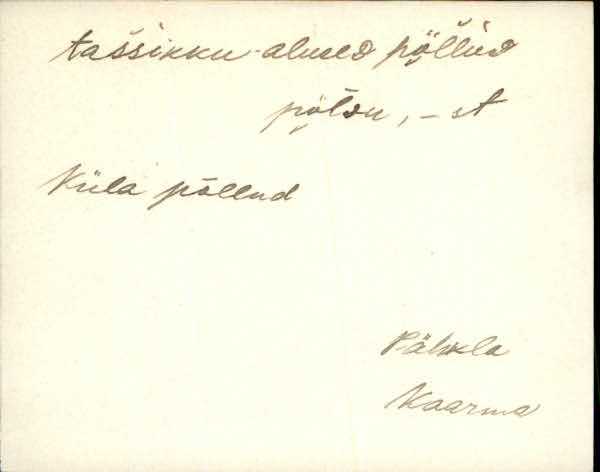 taššikku-alused põllud
põldu, -st
Küla põllud
Pähkla
Kaarma